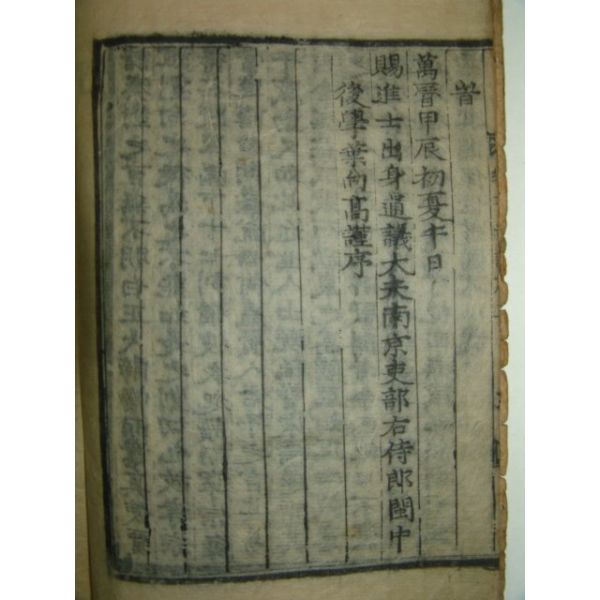 旹
萬曆甲辰初夏午日
賜進士出身通議大夫南京吏部右侍郎閩中
後學葉向高謹序